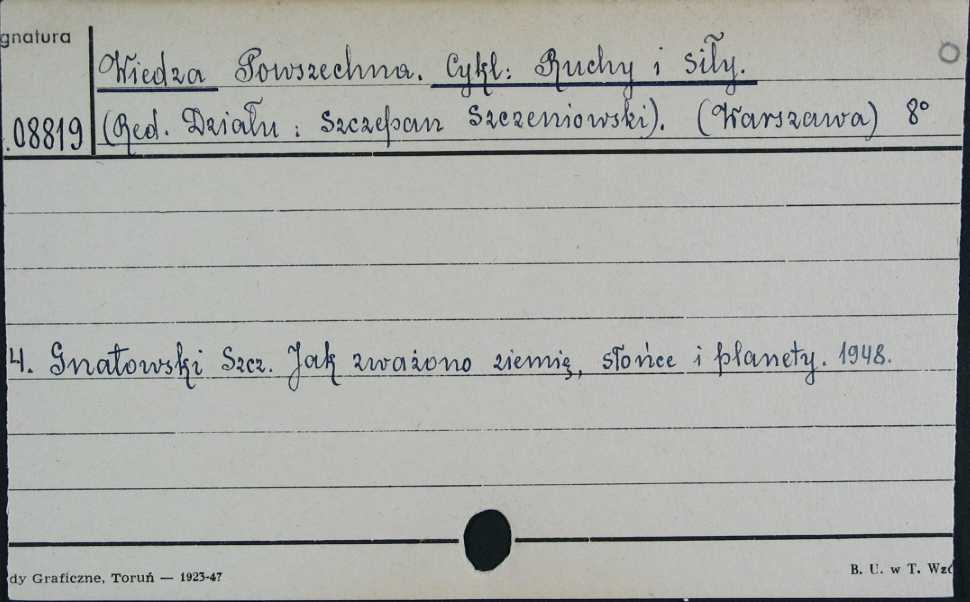 gnatura
Wiedza Powszechna. Cykl: Ruchy i siły.
08819 (Red. Działu: Szczepan Szczeniowski). (Warszawa) 8°
4. Gnatowski Szcz. Jak zważono ziemię, słońce i planety. 1948.
dy Graficzne, Toruń — 1923-47
B. U. w T. Wzó